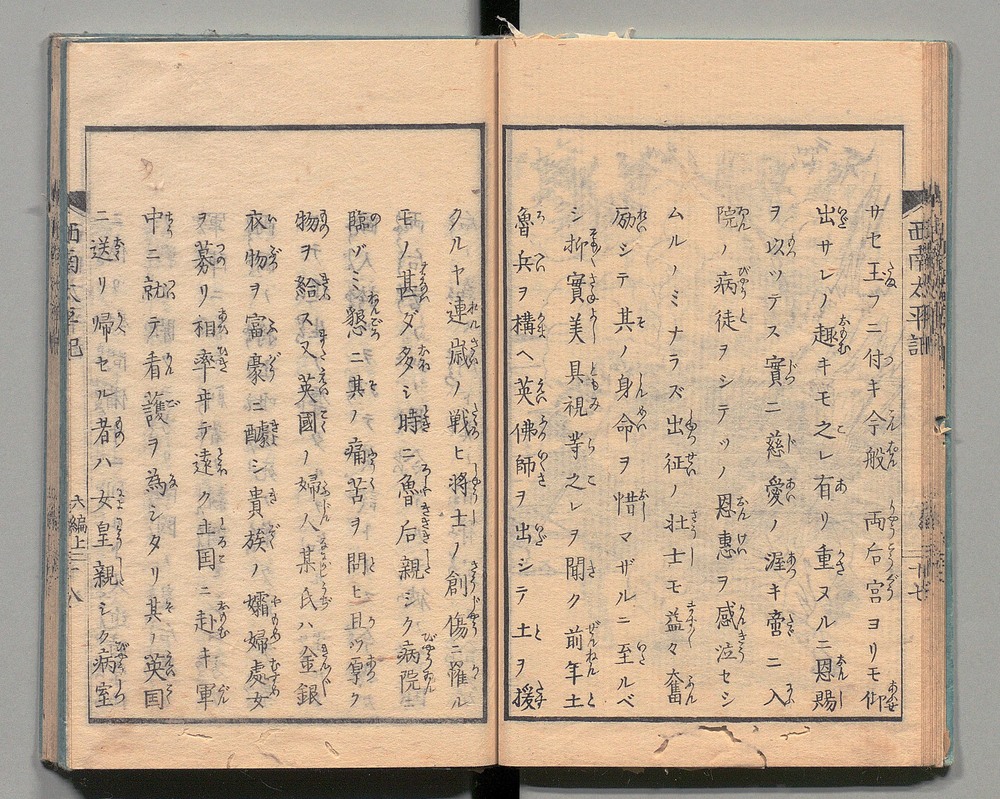 西南太平記
サセ玉フニ付キ今般両后宮ヨリモ仰
出サレノ趣キモ之レ有リ重ヌルニ恩賜
ヲ以ツテス實ニ慈愛ノ渥キ啻ニ入
院ノ病徒ヲシテソノ恩惠ヲ感泣セシ
ムルノミナラズ出征ノ壮士モ益々奮
励シテ其ノ身命ヲ惜マザルニ至ルベ
シ抑實美具視等之レヲ聞ク前年土
魯兵ヲ構ヘ英佛師ヲ出シテ土ヲ援
タルヤ連歳ノ戦ヒ将士ノ創傷ニ罹ル
モノ甚ダ多シ時ニ魯后親シク病院ニ
臨ヅミ懇ニ其ノ痛苦ヲ問ヒ且ツ厚ク
物ヲ給ス又英國ノ婦人某氏ハ金銀
衣物ヲ富豪ニ醵シ貴族ノ孀婦處女
ヲ募リ相率ヰテ遠ク土国ニ赴キ軍
中ニ就テ看護ヲ為シタリ其ノ英国
ニ送リ帰セル者ハ女皇親シク病室
西南太平記
六編上
十八